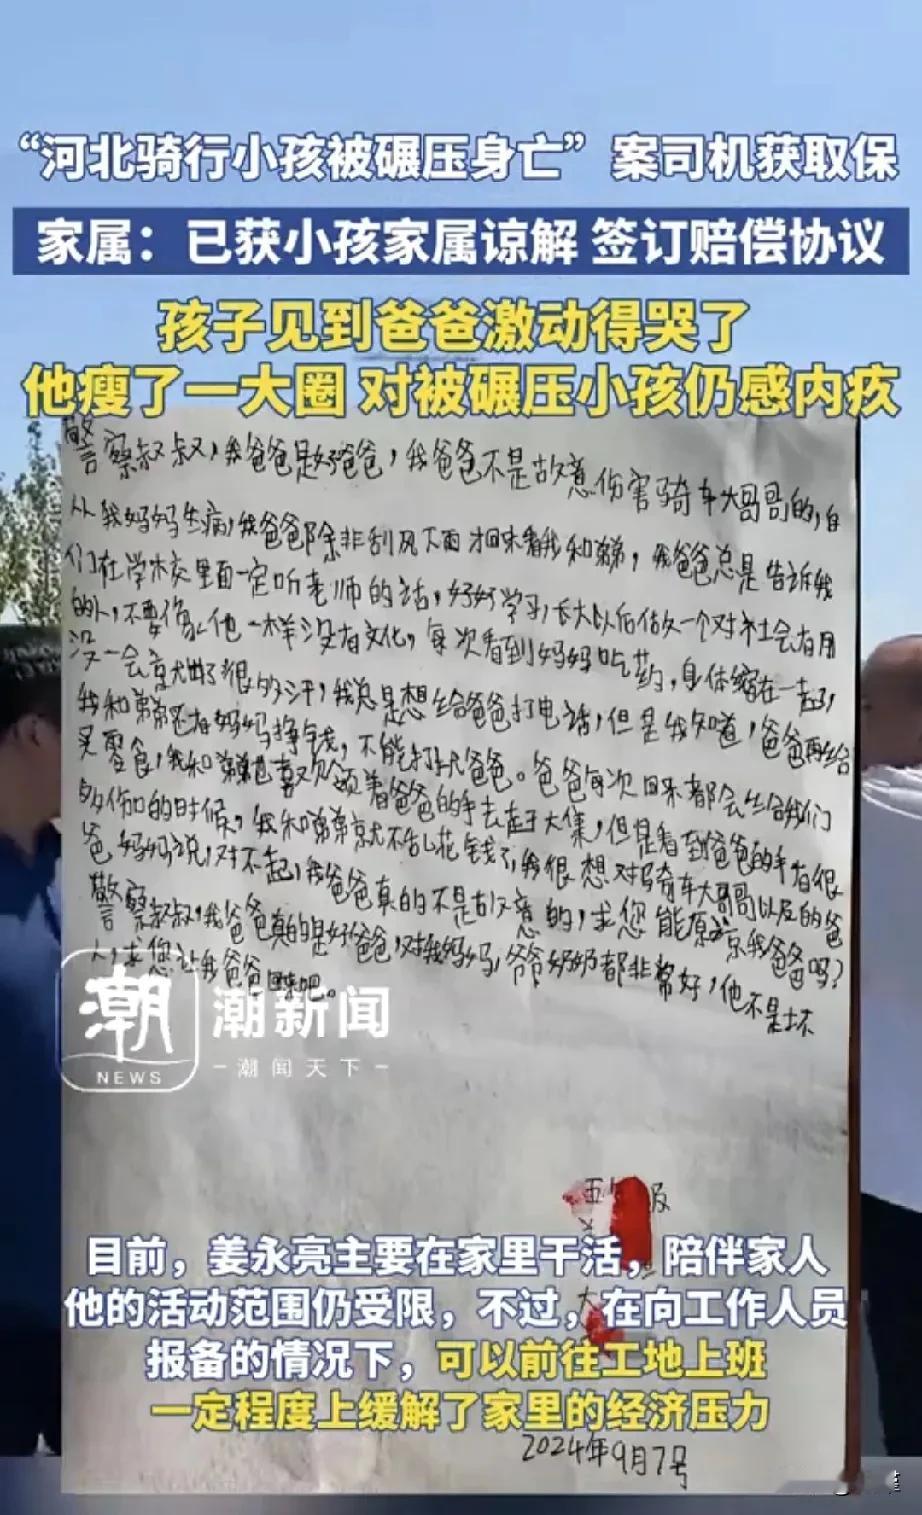 “河北骑行小孩被碾压身亡”案司机获取保
家属：已获小孩家属谅解 签订赔偿协议
孩子见到爸爸激动得哭了
他瘦了一大圈 对被碾压小孩仍感内疚
警察叔叔，我爸爸是好爸爸，我爸爸不是故意伤害骑车大哥哥的，自
从我妈妈生病，我爸爸除非刮风下雨才回来看我和弟弟，我爸爸总是告诉我
们在学校里面一定听老师的话，好好学习，长大以后做一个对社会有用
的人，不要像他一样没有文化，每次看到妈妈吃药，身体缩在一起，
没一会就出了很多汗，我总是想给爸爸打电话，但是我知道，爸爸再给
我和弟弟还有妈妈挣钱，不能打扰爸爸。爸爸每次回来都会给我们
买零食，我和弟弟也喜欢领着爸爸的手去赶大集，但是看到爸爸的手有很
多伤口的时候，我和弟弟就不乱花钱了，我很想对骑车大哥哥以及的爸
爸妈妈说，对不起，我爸爸真的不是故意的，求您能原谅我爸爸吗？
警察叔叔，我爸爸真的是好爸爸，对我妈妈，爷爷奶奶都非常好，他不是坏
人，求您让我爸爸回来吧。
潮
NEWS
潮新闻
潮闻天下
五
大
目前，姜永亮主要在家里干活，陪伴家人
他的活动范围仍受限，不过，在向工作人员
报备的情况下，可以前往工地上班
一定程度上缓解了家里的经济压力
2024年9月7号